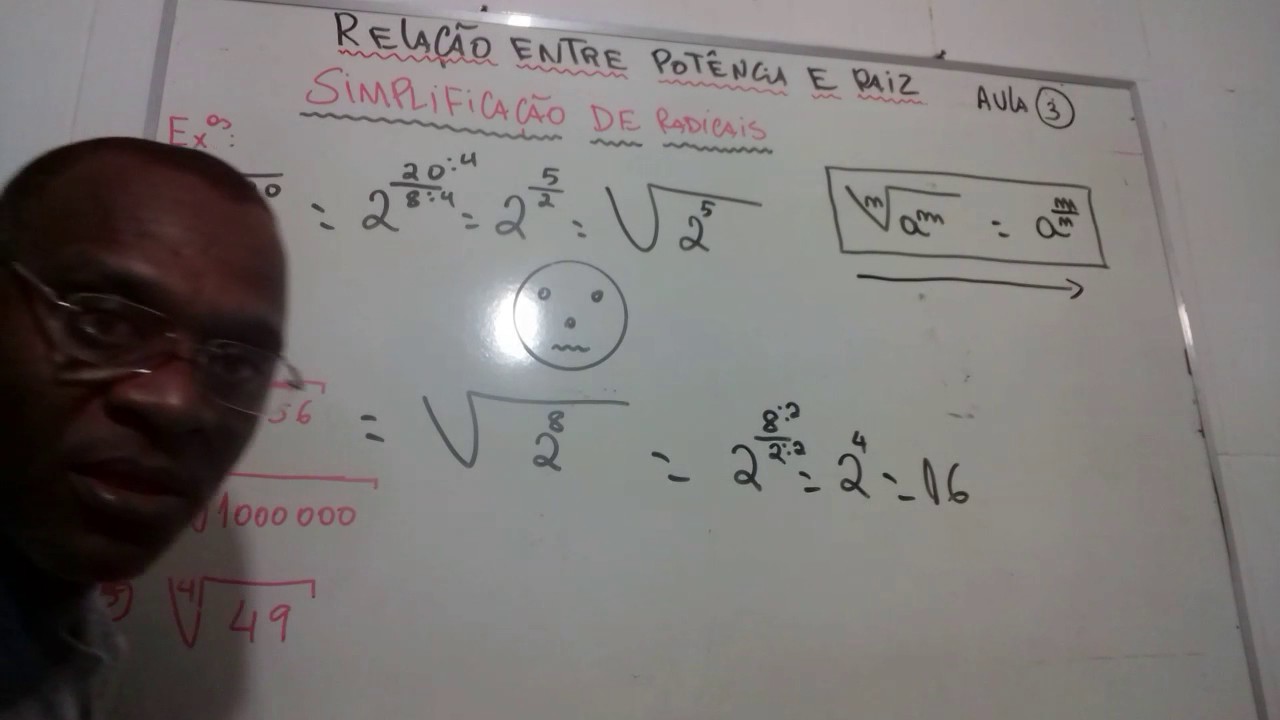 RELAÇÃO ENTRE POTÊNCIA E RAIZ
AULA 3
SIMPLIFICAÇÃO DE RADICAIS
Exos:
= 2^(20:4/8:4) = 2^(5/2) = √2^5
ᵐ√a^m = a^(m/m)
56 = √2^8 = 2^(8:2/2:2) = 2^4 = 16
√1000000
5) ⁴√49